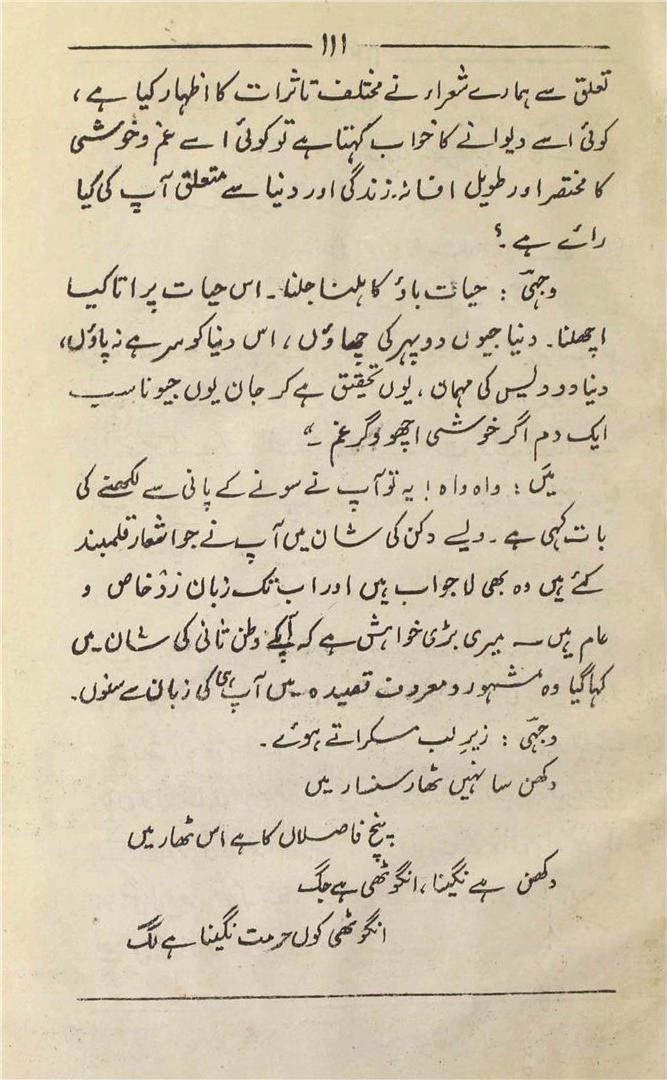 ۱۱۱
تعلق سے ہمارے شعراء نے مختلف تاثرات کا اظہار کیا ہے،
کوئی اسے دیوانے کا خواب کہتا ہے تو کوئی اسے غم و خوشی
کا مختصر اور طویل افسانہ۔ زندگی اور دنیا سے متعلق آپ کی کیا
رائے ہے۔؟
وجہیؔ : حیات باؤ کا ہلنا جلنا۔ اس حیات پر اتا کیا
اچھلنا۔ دنیا جیوں دوپہر کی چھاؤں، اس دنیا کو سر ہے نہ پاؤں،
دنیا دو دیس کی مہمان، یوں تحقیق ہے کر جان یوں جیونا سب
ایک دم اگر خوشی اچھو وگر غم ۔"
میںؔ : واہ واہ! یہ تو آپ نے سونے کے پانی سے لکھنے کی
بات کہی ہے۔ ویسے دکن کی شان میں آپ نے جو اشعار قلمبند
کئے ہیں وہ بھی لاجواب ہیں اور اب تک زبان زد خاص و
عام ہیں۔ میری بڑی خواہش ہے کہ آپکے وطن ثانی کی شان میں
کہا گیا وہ مشہور و معروف قصیدہ میں آپ ہی کی زبان سے سنوں۔
وجہیؔ : زیرِ لب مسکراتے ہوئے۔
دکھن سا نہیں ٹھار سنسار میں
پنج فاصلاں کا ہے اس ٹھار میں
دکھن ہے نگینا، انگوٹھی ہے جگ
انگوٹھی کوں حرمت نگینا ہے لگ